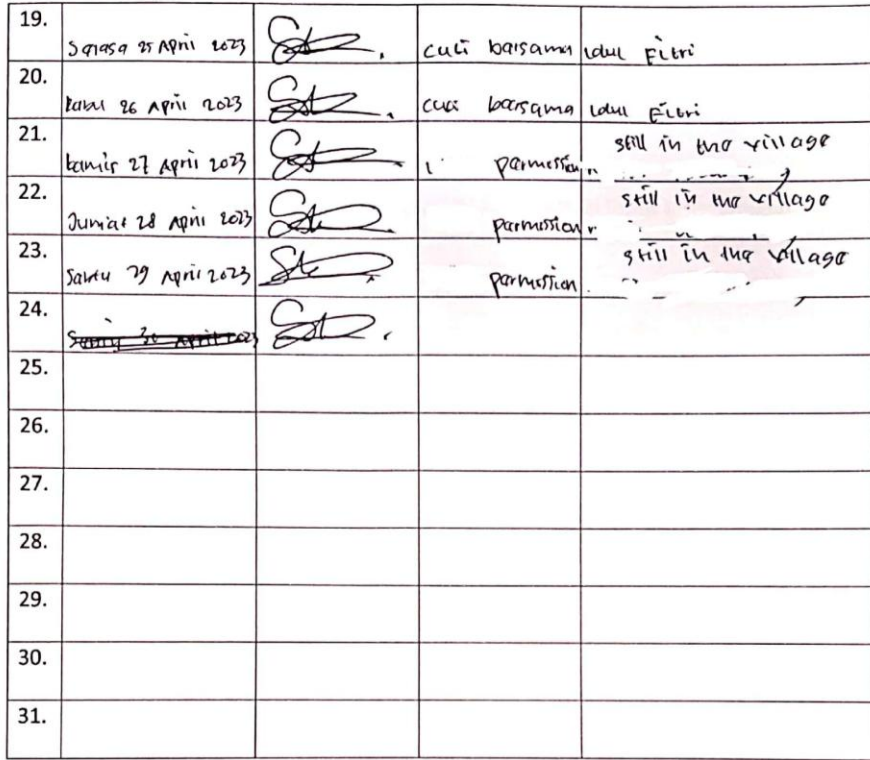 19. Selasa 25 April 2023 cuti bersama idul Fitri
20. Rabu 26 April 2023 cuti bersama idul Fitri
21. kamis 27 April 2023 permission still in the village
22. Jumat 28 April 2023 permission still in the village
23. Sabtu 29 April 2023 permission still in the village
24. Senin 30 April 2023
25.
26.
27.
28.
29.
30.
31.